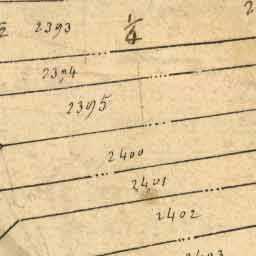 2393 1/4
2394
2395
2400
2401
2402
2403